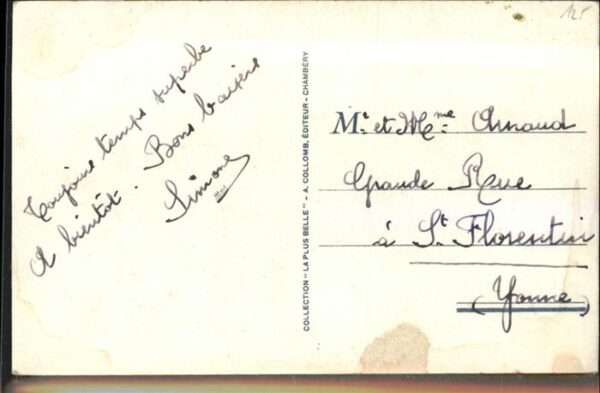 Toujours temps superbe
A bientôt. Bons baisers
Simone
COLLECTION - LA PLUS BELLE - A. COLLOMB, ÉDITEUR - CHAMBÉRY
Mr. et Mme. Arnaud
Grande Rue
à St. Florentin
(Yonne)
125